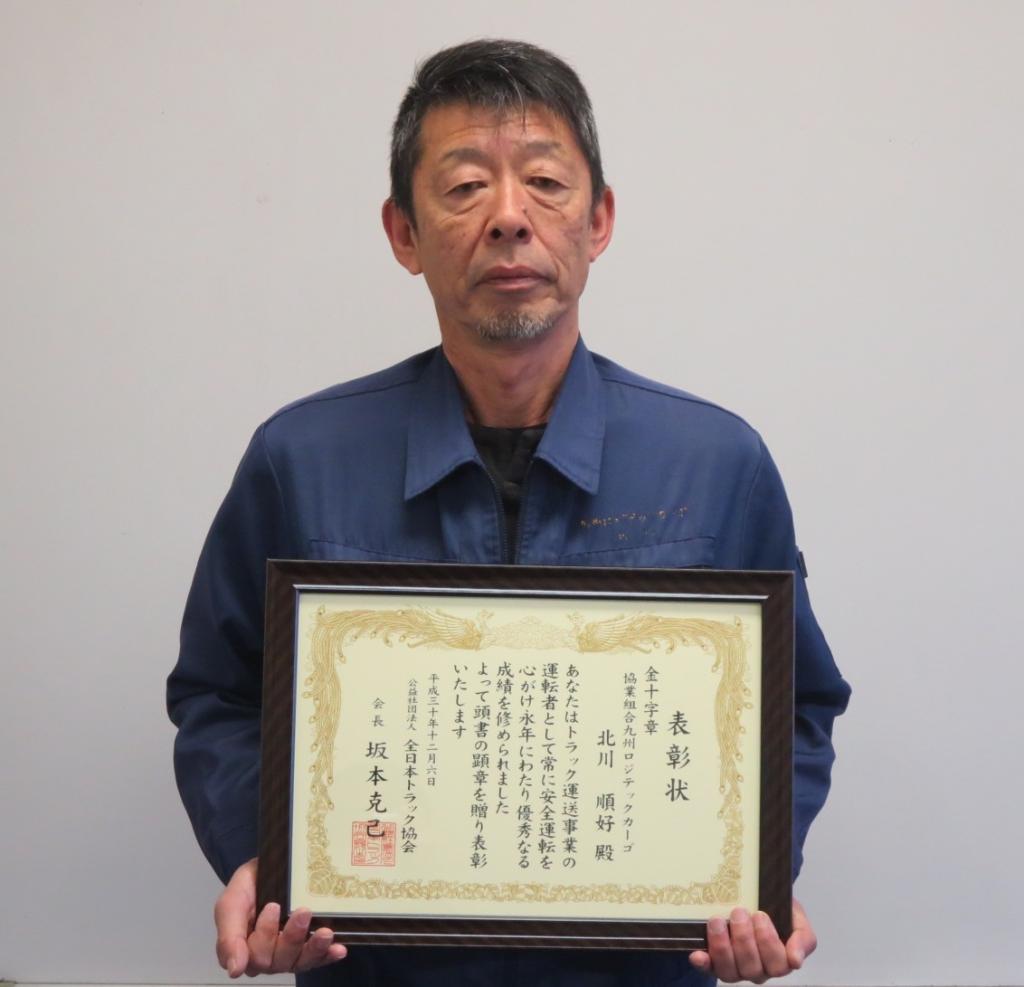 表彰状
金十字章
協業組合九州ロジテックカーゴ
北川 順好 殿
あなたはトラック運送事業の
運転者として常に安全運転を
心がけ永年にわたり優秀なる
成績を修められました
よって頭書の顕章を贈り表彰
いたします
平成三十年十二月六日
公益社団法人 全日本トラック協会
会長 坂本克己